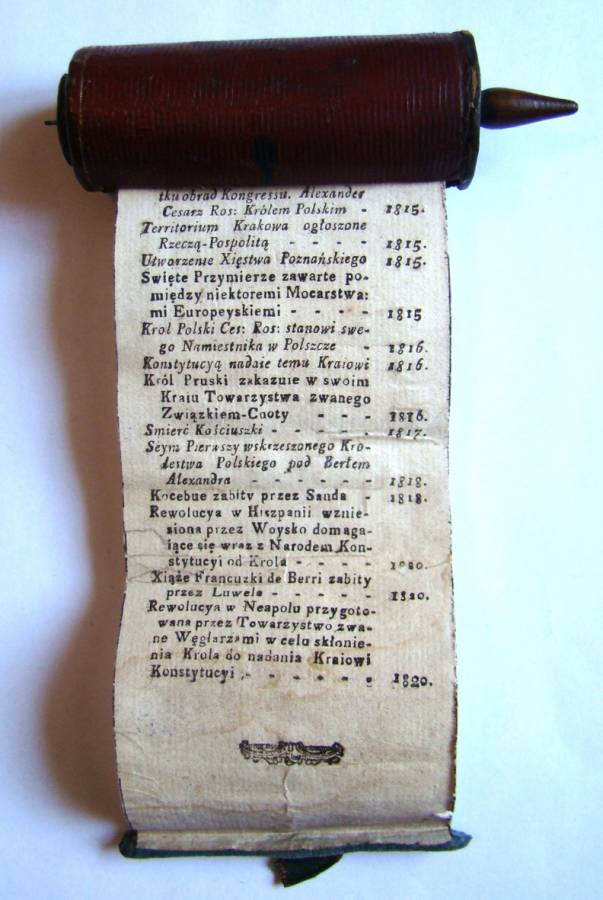 tku obrad Kongressu. Alexander
Cesarz Ros: Królem Polskim - 1815.
Territorium Krakowa ogłoszone
Rzeczą-Pospolitą - - - - 1815.
Utworzenie Xięstwa Poznańskiego 1815.
Swięte Przymierze zawarte po-
między niektoremi Mocarstwa:
mi Europeyskiemi - - - - 1815
Krol Polski Ces: Ros: stanowi swe-
go Namiestnika w Polszcze - 1816.
Konstytucyą nadaie temu Kraiowi 1816.
Król Pruski zakazuie w swoim
Kraiu Towarzystwa zwanego
Związkiem-Cnoty - - - 1816.
Smierć Kościuszki - - - - - 1817.
Seym Pierwszy wskrzeszonego Kro-
lestwa Polskiego pod Berłem
Alexandra - - - - - - 1818.
Kocebue zabity przez Sanda - 1818.
Rewolucya w Hiszpanii wznie-
siona przez Woysko domaga-
iące się wraz z Narodem Kon-
stytucyi od Krola - - - - - 1820.
Xiąże Francuzki de Berri zabity
przez Luwela - - - - - 1820.
Rewolucya w Neapolu przygoto-
wana przez Towarzystwo zwa-
ne Węglarzami w celu skłonie-
nia Krola do nadania Kraiowi
Konstytucyi - - - - - - 1820.